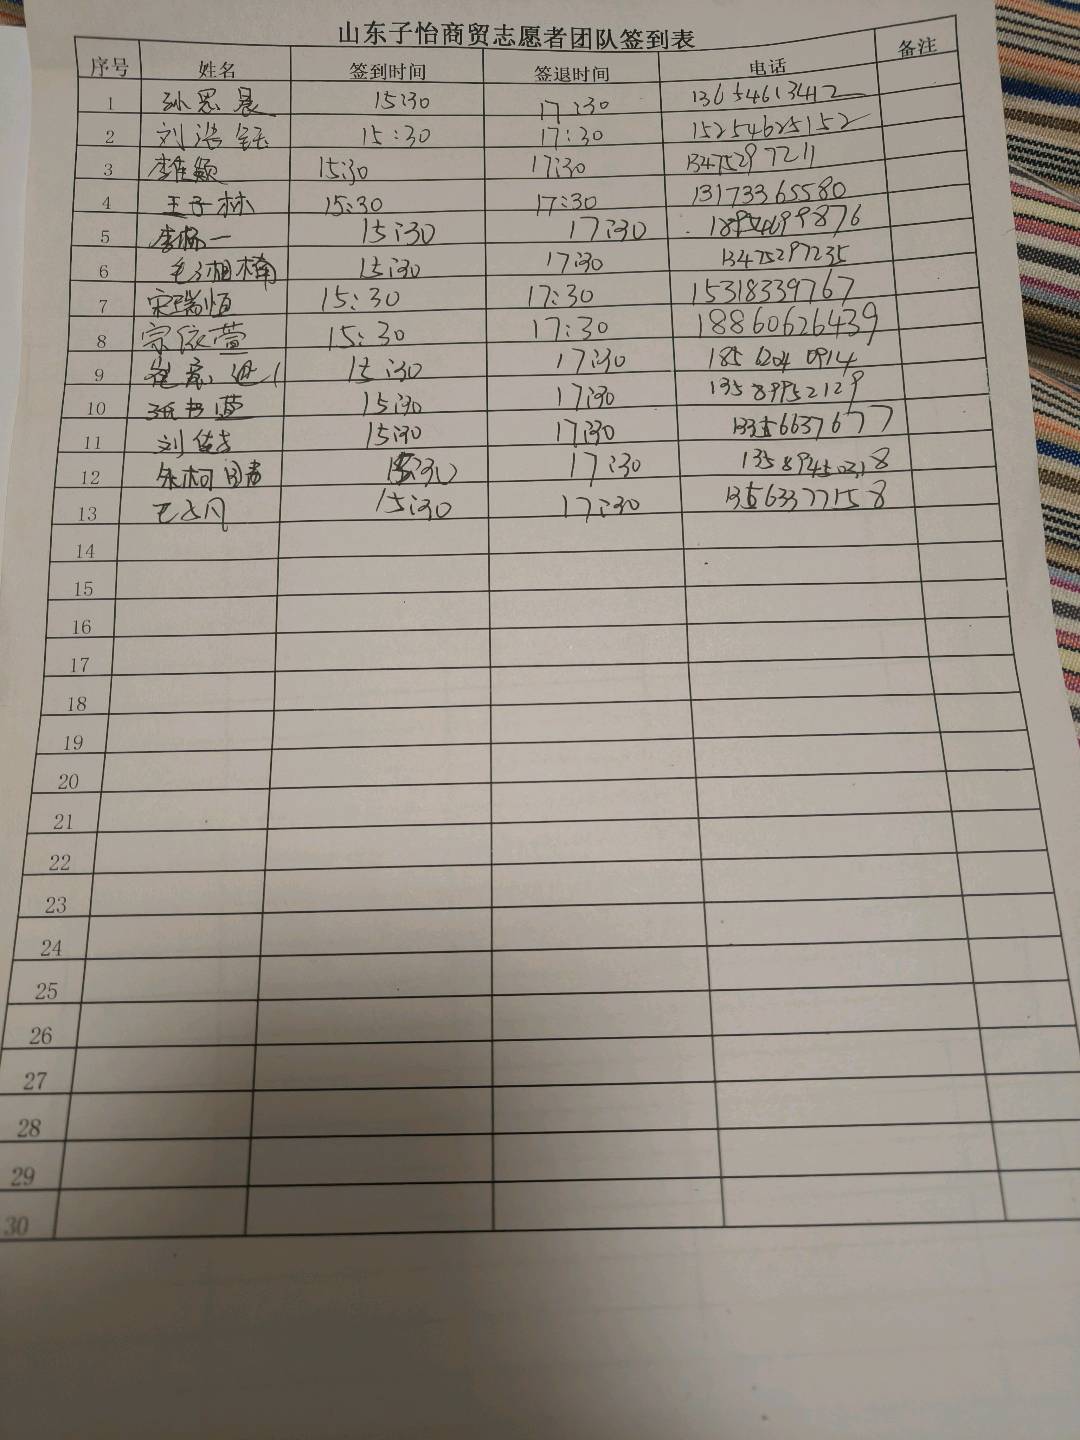 山东子怡商贸志愿者团队签到表
序号 姓名 签到时间 签退时间 电话 备注
1 孙思晨 15:30 17:30 13654613412
2 刘浩钰 15:30 17:30 15254625152
3 李佳颖 15:30 17:30 13475297211
4 王子林 15:30 17:30 13173365580
5 李杨一 15:30 17:30
6 15:30 17:30 13475297235
7 宋瑞恒 15:30 17:30 15318339767
8 宗依萱 15:30 17:30 18860626439
9 15:30 17:30 18561204 0914
10 张书萱 15:30 17:30 13589952129
11 刘 15:30 17:30
12 15:30 17:30
13 15:30 17:30
14
15
16
17
18
19
20
21
22
23
24
25
26
27
28
29
30